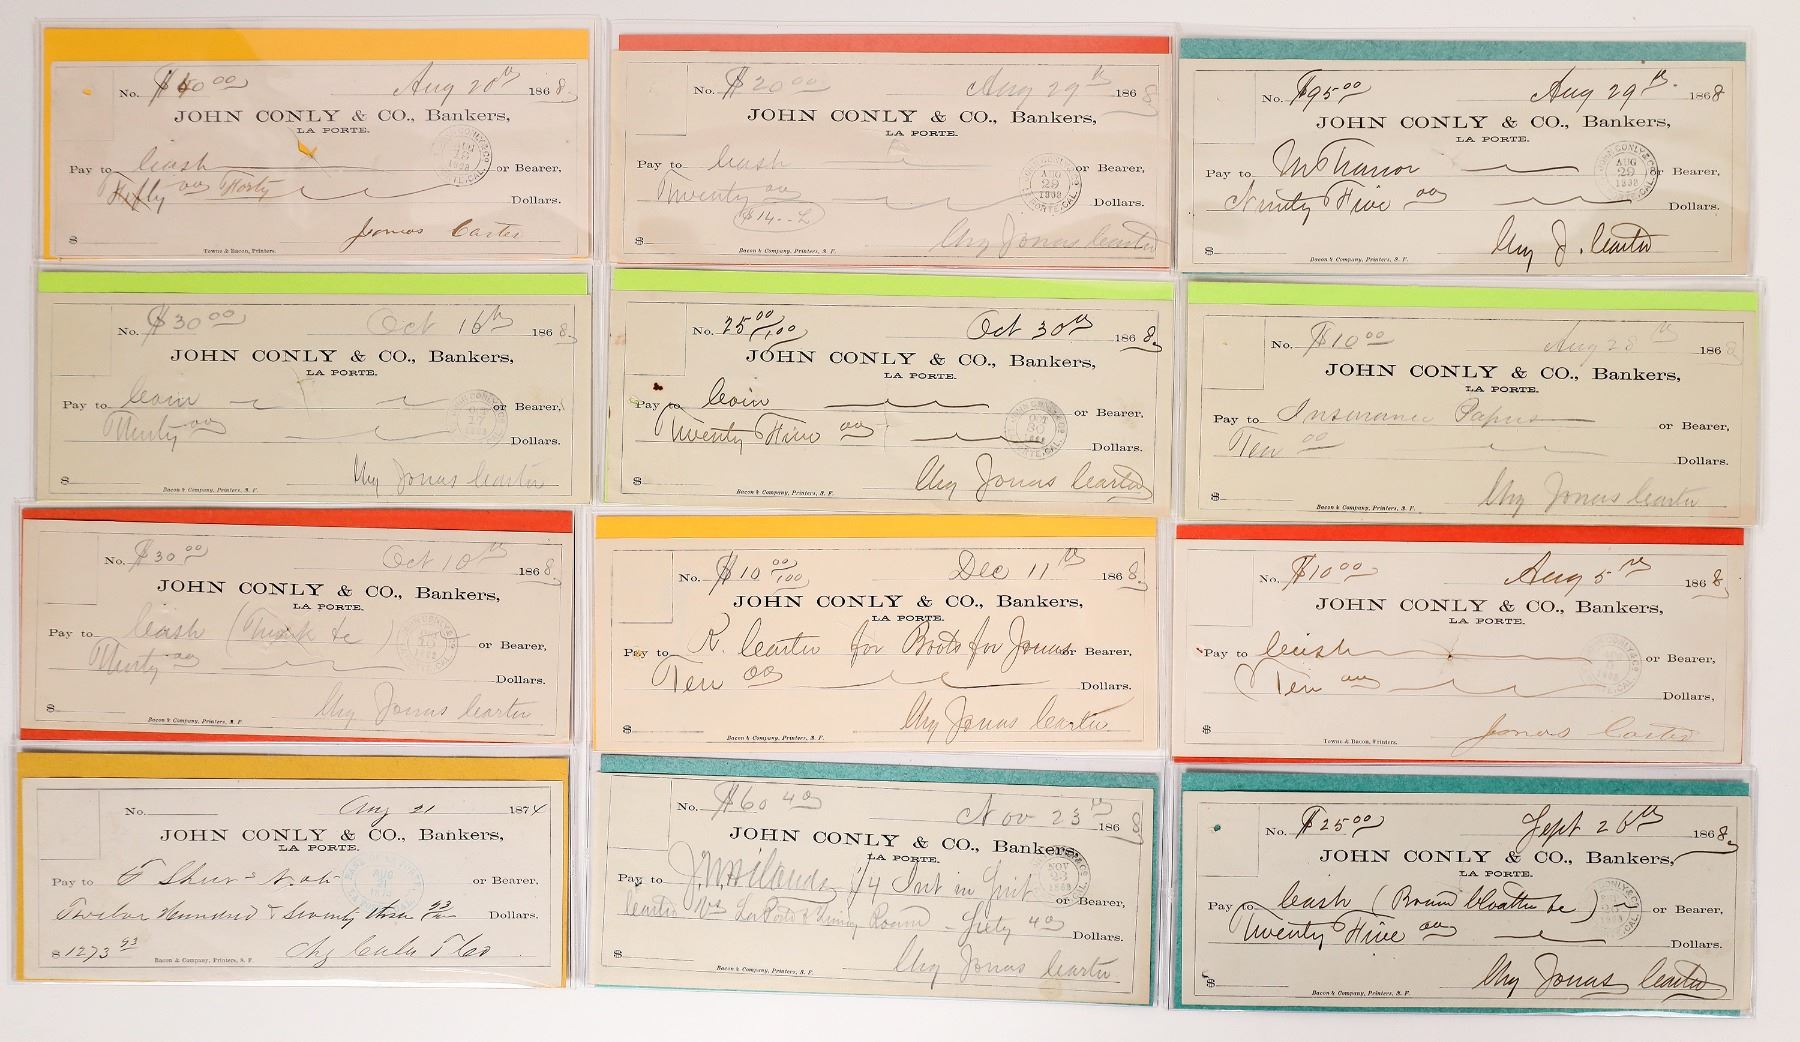 No. $40 00 Aug 28th 1868.
JOHN CONLY & CO., Bankers,
LA PORTE.
Pay to Cash or Bearer,
Fifty 00 Forty Dollars.
$ Jonas Carter
Towne & Bacon, Printers.
No. $20 00 Aug 29th 1868
JOHN CONLY & CO., Bankers,
LA PORTE.
Pay to Cash or Bearer,
JOHN CONLY & CO. AUG 29 1868 LA PORTE, CAL.
Twenty 00 Dollars.
$14
$ Chg Jonas Carter
Bacon & Company, Printers, S. F.
No. $95 00 Aug 29th 1868
JOHN CONLY & CO., Bankers,
LA PORTE.
Pay to or Bearer,
JOHN CONLY & CO. AUG 29 1868 LA PORTE, CAL.
Ninty Five 00 Dollars.
$ Chg J. Carter
Bacon & Company, Printers, S. F.
No. $30 00 Oct 16th 1868.
JOHN CONLY & CO., Bankers,
LA PORTE.
Pay to Coin or Bearer,
Thirty 00 Dollars.
$ Chg Jonas Carter
Bacon & Company, Printers, S. F.
No. 25 00/100 Oct 30th 1868.
JOHN CONLY & CO., Bankers,
LA PORTE.
Pay to Coin or Bearer,
Twenty Five 00 Dollars.
$ Chg Jonas Carter
Bacon & Company, Printers, S. F.
No. $10 00 Aug 28th 1868
JOHN CONLY & CO., Bankers,
LA PORTE.
Pay to Insurance Papers or Bearer,
Ten 00 Dollars.
$ Chg Jonas Carter
Bacon & Company, Printers, S. F.
No. $30 00 Oct 10th 1868.
JOHN CONLY & CO., Bankers,
LA PORTE.
Pay to Cash or Bearer,
Thirty 00 Dollars.
$ Chg Jonas Carter
Bacon & Company, Printers, S. F.
No. $10 00/100 Dec 11th 1868.
JOHN CONLY & CO., Bankers,
LA PORTE.
Pay to R. Carter for Boots for Jonas or Bearer,
Ten 00 Dollars.
$ Chg Jonas Carter
Bacon & Company, Printers, S. F.
No. $10 00 Aug 5th 1868.
JOHN CONLY & CO., Bankers,
LA PORTE.
Pay to Cash or Bearer,
Ten 00 Dollars,
$ Jonas Carter
Towne & Bacon, Printers.
No. Aug 21 1874
JOHN CONLY & CO., Bankers,
LA PORTE.
Pay to or Bearer,
Twelve Hundred & Seventy three 93/100 Dollars.
$1273 93 Chg
Bacon & Company, Printers, S. F.
No. $60 40 Nov 23rd 1868
JOHN CONLY & CO., Bankers
LA PORTE.
Pay to 1/4 Int in Suit or Bearer,
NOV 23 1868
Carter Vs La Porte Sixty 40 Dollars.
$ Chg Jonas Carter
Bacon & Company, Printers, S. F.
No. $25 00 Sept 26th 1868.
JOHN CONLY & CO., Bankers,
LA PORTE.
Pay to Cash or Bearer,
Twenty Five 00 Dollars.
$ Chg Jonas Carter
Bacon & Company, Printers, S. F.